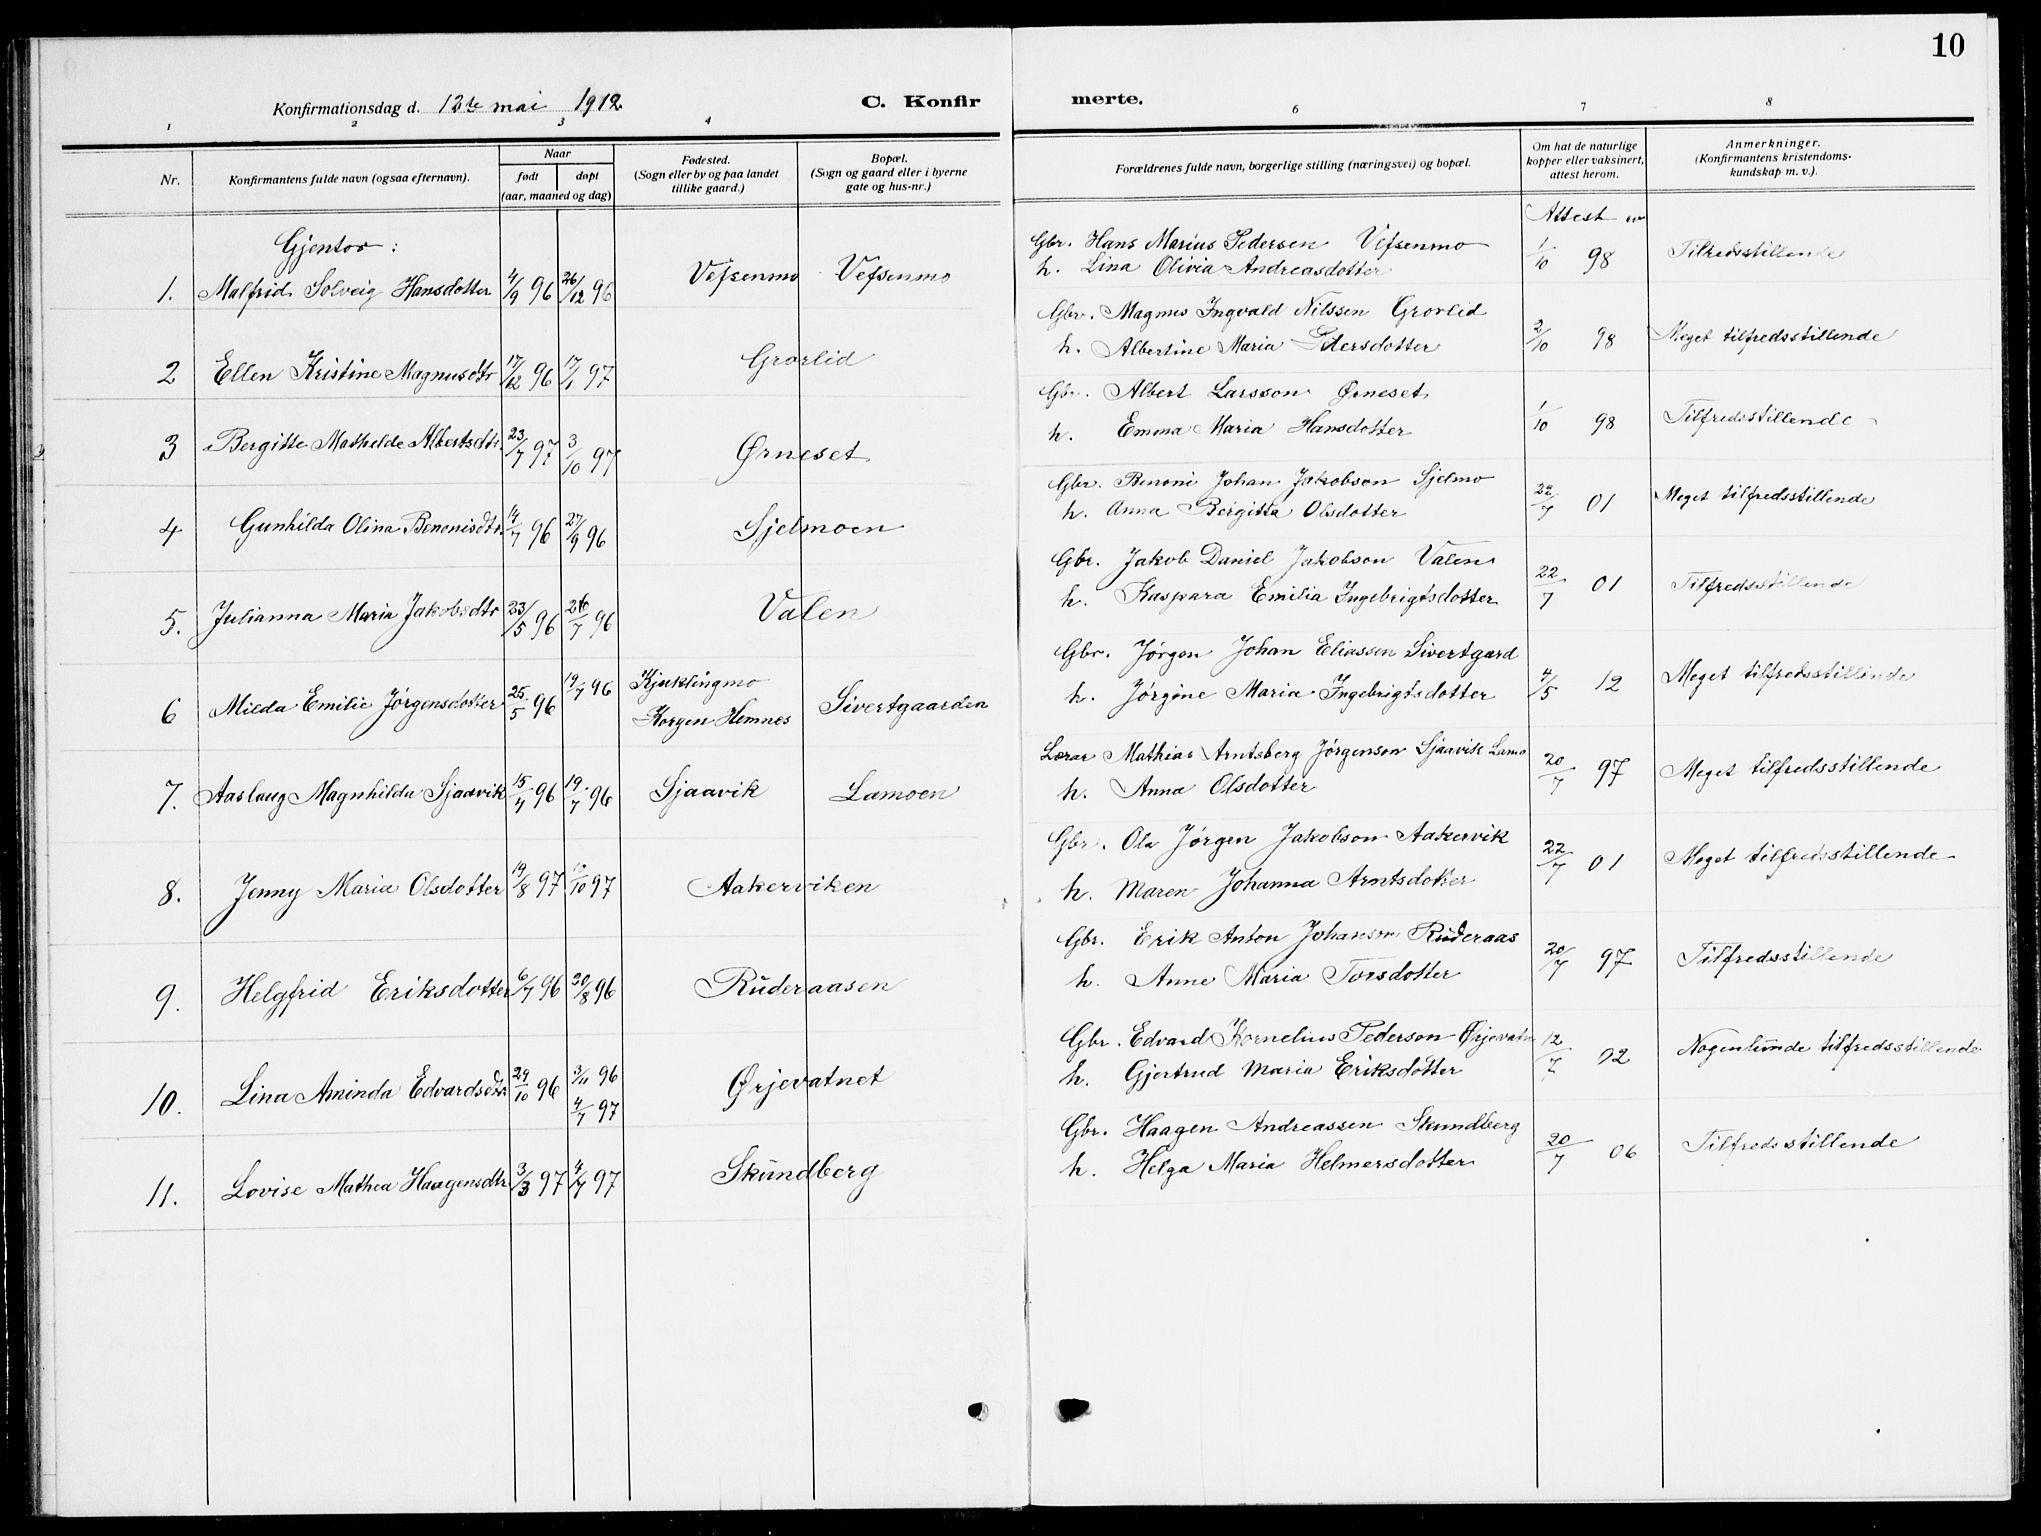 10
Konfirmationsdag d. 12te mai 1912
C. Konfir merte.
1 2 3 4 6 7 8
Nr.
Konfirmantens fulde navn (ogsaa efternavn).
Naar
født døpt
(aar, maaned og dag)
Fødested.
(Sogn eller by og paa landet
tillike gaard.)
Bopæl.
(Sogn og gaard eller i byerne
gate og hus-nr.)
Forældrenes fulde navn, borgerlige stilling (næringsvei) og bopæl.
Om hat de naturlige
kopper eller vaksinert,
attest herom.
Anmerkninger.
(Konfirmantens kristendoms-
kundskap m. v.).
Gjentor:
Attest
1. Malfrid Solveig Hansdotter 4/9 96 26/12 96 Vefsenmo Vefsenmo
Gbr. Hans Marius Pedersen Vefsenmo 1/10 98 Tilfredsstillende
h. Lina Olivia Andreasdotter
2 Ellen Kristine Magnusdtr 17/12 96 17/1 97 Grorlid
Gbr. Magnus Ingvald Nilssen Grorlid 2/10 98 Meget tilfredsstillende
h. Albertine Maria Pedersdotter
3 Bergitte Mathilde Albertsdtr. 23/7 97 3/10 97 Ørneset
Gbr. Albert Larsson Ørneset 1/10 98 Tilfredsstillende
h. Emma Maria Hansdotter
4 Gunhilda Olina Benonisdtr. 14/7 96 27/9 96 Sjelmoen
Gbr. Benoni Johan Jakobson Sjelmo 22/7 01 Meget tilfredsstillende
h. Anna Bergitta Olsdotter
5. Julianna Maria Jakobsdtr 23/5 96 26/7 96 Valen
Gbr. Jakob Daniel Jakobson Valen 22/7 01 Tilfredsstillende
h. Kaspara Emilia Ingebrigtsdotter
6 Milda Emilie Jørgensdotter 25/5 96 19/7 96 Kjuklingmo
Korgen Hemnes Sivertgaarden
Gbr. Jørgen Johan Eliassen Sivertgard 4/5 12 Meget tilfredsstillende
h. Jørgine Maria Ingebrigtsdotter
7. Aaslaug Magnhilda Sjaavik 15/4 96 19/7 96 Sjaavik Lamoen
Lærar Mathias Arntsberg Jørgenson Sjaavik Lamo 20/7 97 Meget tilfredsstillende
h. Anna Olsdotter
8. Jenny Maria Olsdotter 19/8 97 10/10 97 Aakerviken
Gbr. Ola Jørgen Jakobson Aakervik 22/7 01 Meget tilfredsstillende
h. Maren Johanna Arntsdotter
9. Helgfrid Eriksdotter 6/7 96 30/8 96 Ruderaasen
Gbr. Erik Anton Johanson Ruderaas 20/7 97 Tilfredsstillende
h. Anne Maria Torsdotter
10. Lina Aminda Edvardsdtr. 29/10 96 3/11 96 Ørjevatnet
4/7 97
Gbr. Edvard Kornelius Pederson Ørjevatn 12/7 02 Nogenlunde tilfredsstillende
h. Gjertrud Maria Eriksdotter
11. Lovise Mathea Haagensdtr 3/3 97 4/7 97 Skundberg
Gbr. Haagen Andreassen Skundberg 20/7 06 Tilfredsstillende
h. Helga Maria Helmersdotter